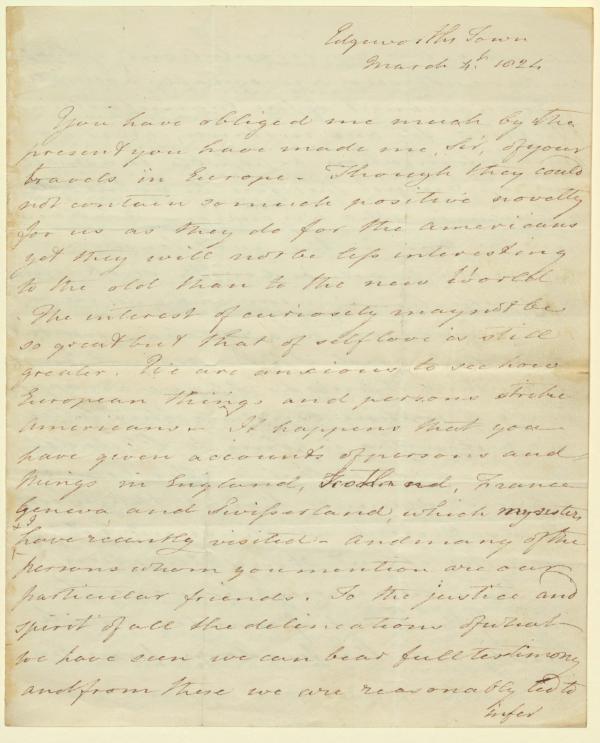 Edgeworths Town
March 4th. 1824
You have obliged me much by the
present you have made me, Sir, of your
travels in Europe - Though they could
not contain so much positive novelty
for us as they do for the Americans
yet they will not be less interesting
to the old than to the new World
The interest of curiosity may not be
so great but that of self love is still
greater. We are anxious to see how
European things and persons strike
Americans - It happens that you
have given accounts of persons and
things in England, Scotland, France
Geneva and Swisserland, which my sisters
& I
have recently visited - and many of the
persons whom you mention are our
particular friends. To the justice and
spirit of all the delineations of what
we have seen we can bear full testimony
and from these we are reasonably led to
infer